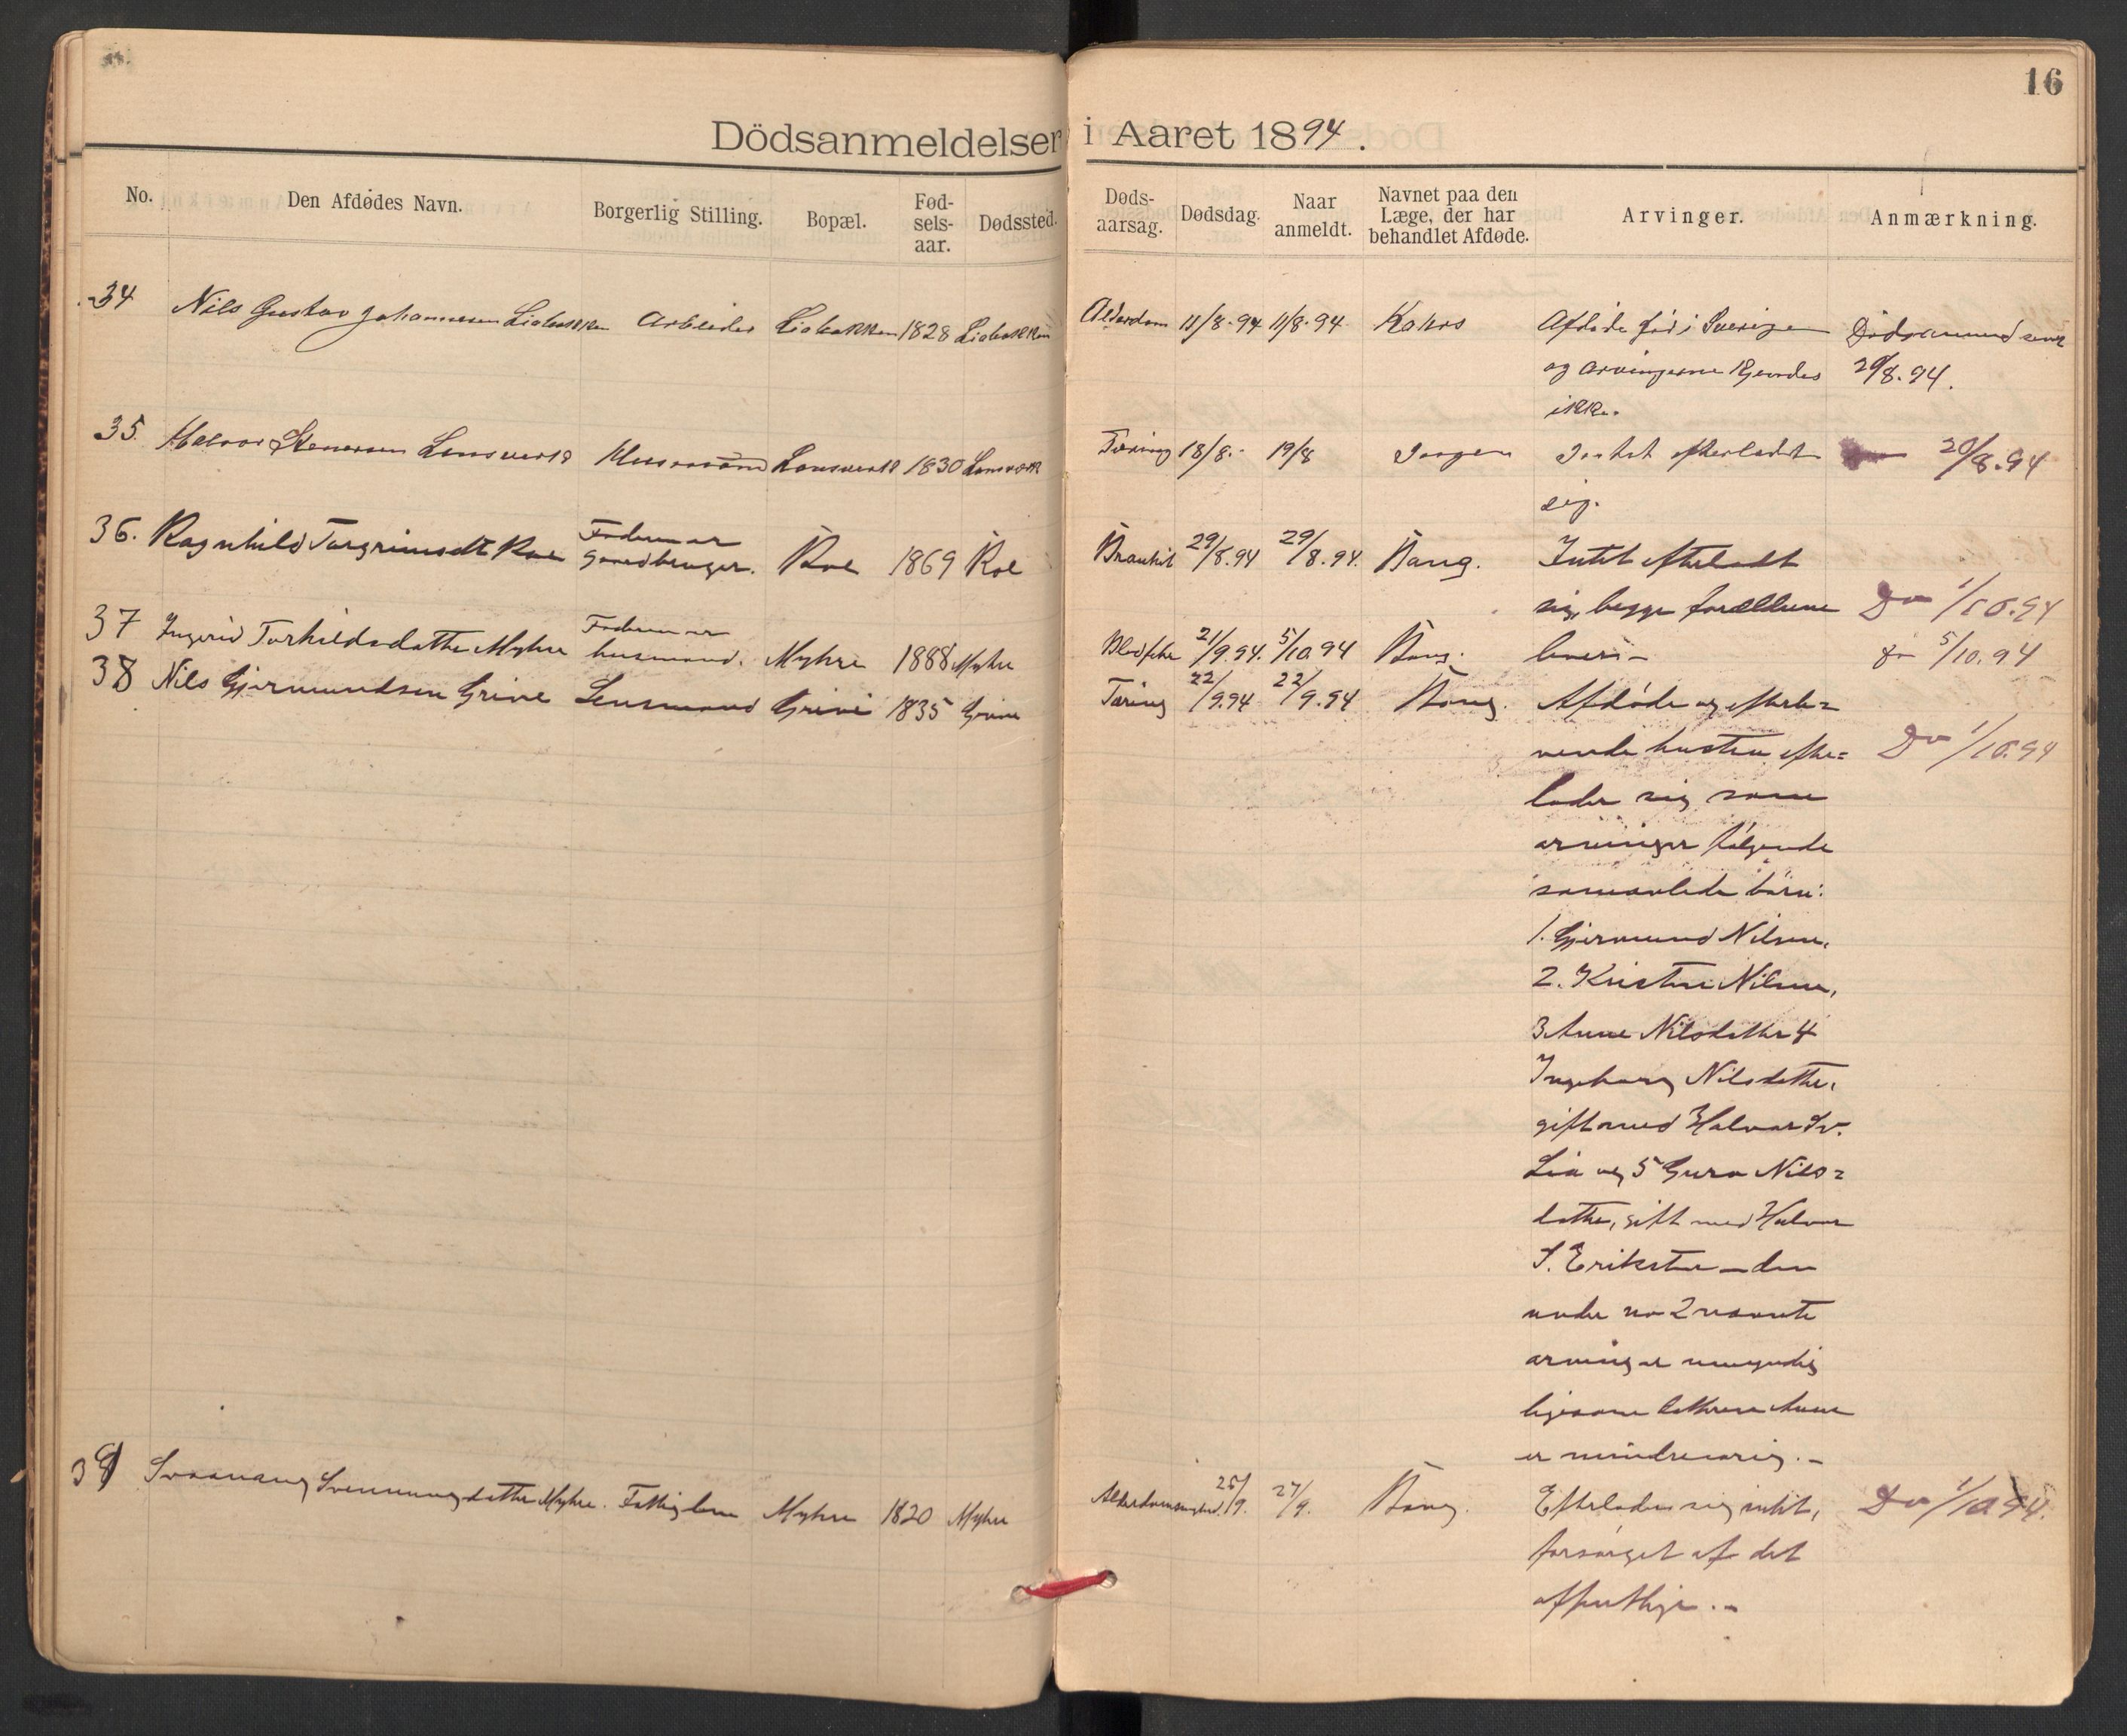 16
Dödsanmeldelser i Aaret 1894.
No. Den Afdødes Navn. Borgerlig Stilling. Bopæl. Fød-sels-aar. Dødssted. Døds-aarsag. Dødsdag. Naar anmeldt. Navnet paa den Læge, der har behandlet Afdøde. Arvinger. Anmærkning.
34 Nils Gustav Johannesen Liabakken Arbeider Liabakken 1828 Liabakken Alderdom 11/8.94 11/8.94 Kohrs Afdøde född i Sverige
og arvingerne kjendes 20/8.94.
ikke.
35. Halvor Stenersen Husmand 1830 Tæring 18/8. 19/8 Intet efterladt 20/8.94
sig.
36. Ragnhild Torgrimsdt Roe Faderen er
gaardbruger. Roe 1869 Roe 29/8.94 29/8.94. Bang. Intet efterladt
sig, begge forældrene Do 1/10.94
37 Ingerid Torkildsdatter Myhre Faderen er
husmand. Myhre 1888 Myhre 21/9.94. 5/10.94 Bang. lever.- do 5/10.94
38 Nils Gjermundsen Grive Lensmand Grive 1835 Grive Tæring 22/9.94 22/9.94 Bang. Afdøde og efterle=
vende hustru efter= Do 1/10.94
lader sig som
arvinger følgende
samavlede börn:
1. Gjermund Nilsen,
2. Kristen Nilsen,
3 Anne Nilsdatter 4
Ingeborg Nilsdatter,
gift med Halvor Sv.
Lia og 5 Guro Nils=
datter, gift med Halvor
S. Erikstu – den
under no 2 nævnte
arving er umyndig
ligesom datteren Anne
er mindreaarig.–
39 Svenningsdatter Myhre. Fattiglem Myhre 1820 Myhre 25/9. 27/9. Bang. Efterlader sig intet, Do 1/10 94.
forsørget af det
offentlige.–